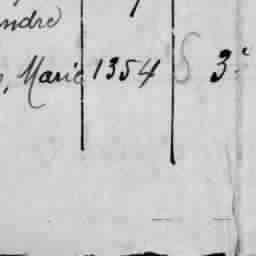 ndre
, Marie 1354 3e